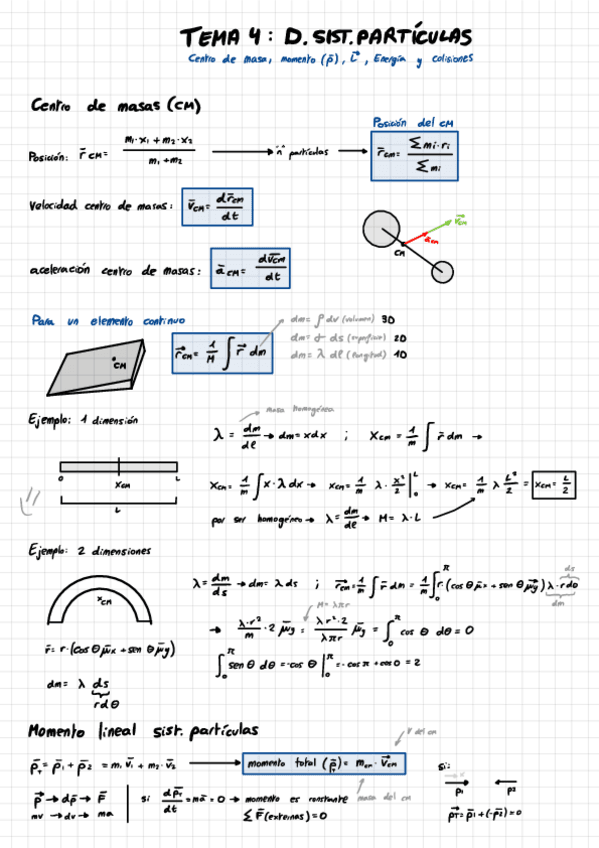 TEMA 4: D. SIST. PARTÍCULAS
Centro de masa, momento (p̄), L⃗, Energía y colisiones
Centro de masas (CM)
Posición del CM
Posición: r̄ CM = (m₁·x₁ + m₂·x₂)/(m₁+m₂) → "n" partículas → r̄cm = Σmi·ri / Σmi
Velocidad centro de masas: v̄cm = dr̄cm/dt
v⃗cm
a⃗cm
CM
aceleración centro de masas: āCM = dv⃗cm/dt
Para un elemento continuo
dm = ρ dv (volumen) 3D
r⃗cm = 1/M ∫ r⃗ dm
dm = σ ds (superficie) 2D
dm = λ dl (longitud) 1D
CM
Ejemplo: 1 dimensión
masa homogénea
λ = dm/dl → dm = λdx ; Xcm = 1/m ∫ r̄ dm →
0 XCM L
L
Xcm = 1/m ∫ x·λdx → xcm = 1/m λ·x²/2 |₀ᴸ → xcm = 1/m λ L²/2 = xcm = L/2
por ser homogéneo → λ = dm/dl → M = λ·L
Ejemplo: 2 dimensiones
ds
λ = dm/ds → dm = λ ds ; r⃗cm = 1/m ∫ r̄ dm = 1/m ∫₀^π r·(cos θ μ̄x + sen θ μ⃗y) λ·rdθ
dm
xCM
M = λπr
→ λ·r²/m · 2 μ⃗y = λr²·2/λπr μ̄y = ∫₀^π cos θ dθ = 0
r̄ = r·(cos θ μ̄x + sen θ μ⃗y)
∫₀^π sen θ dθ = -cos θ |₀^π = -cos π + cos 0 = 2
dm = λ ds
rdθ
Momento lineal sist. partículas
V del cm
p̄T = p̄₁ + p̄₂ = m₁v̄₁ + m₂·v̄₂ → momento total (p⃗T) = mcm·v⃗cm
si:
p₁ p₂
p⃗ → dp̄ → F̄
mv → dv → ma
si dp̄T/dt = mā = 0 → momento es constante
masa del cm
ΣF̄(externas) = 0
p⃗T = p̄₁ + (-p̄₂) = 0